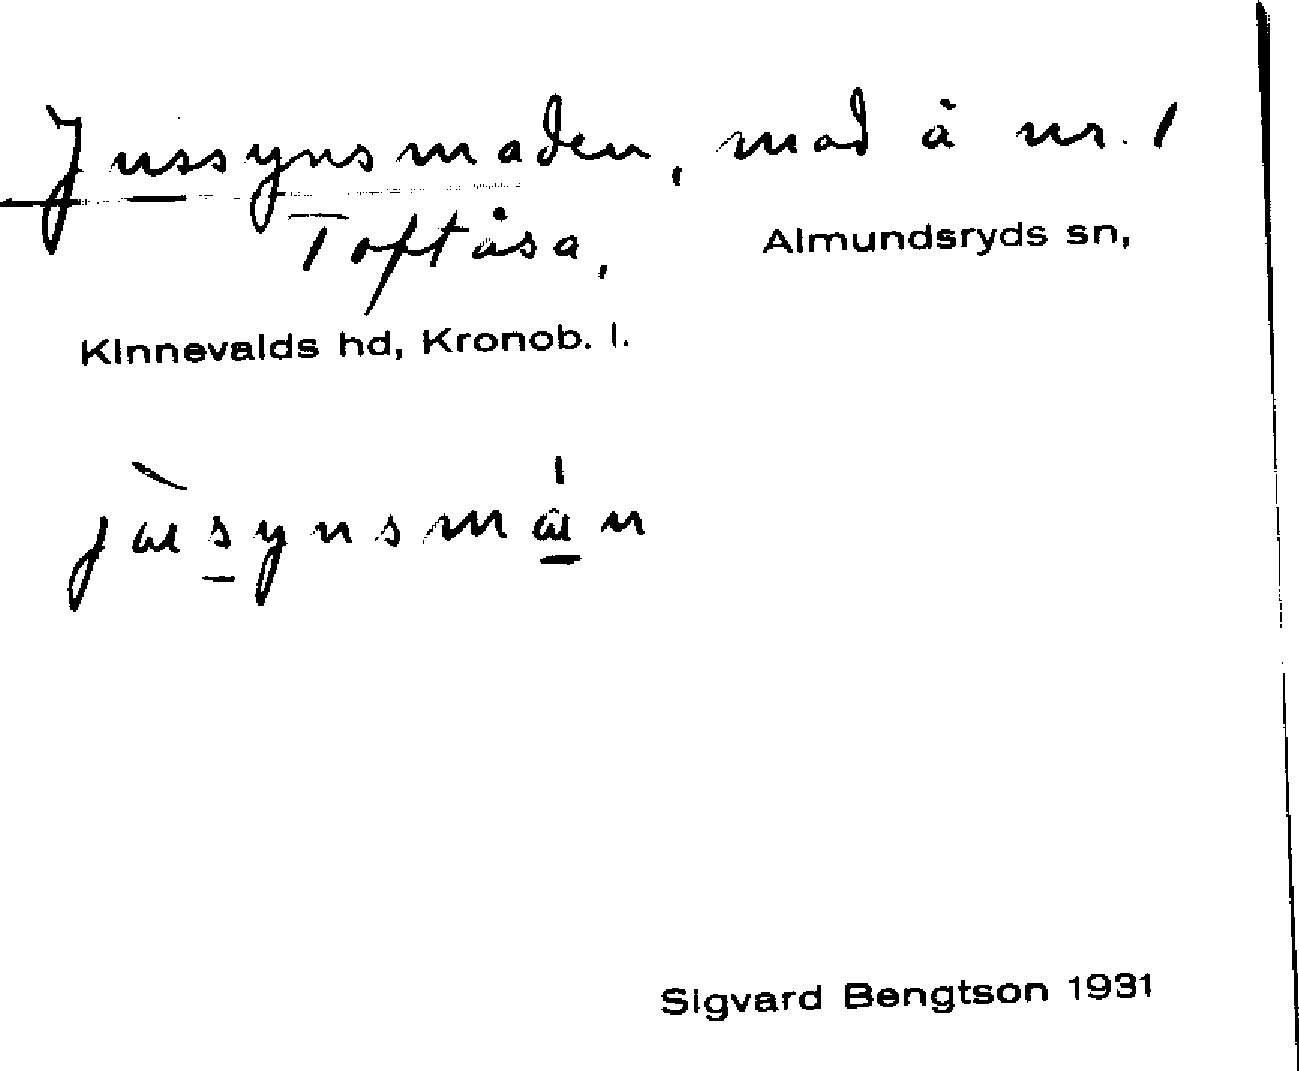 Jussynsmaden, mad å nr. 1
Toftåsa, Almundsryds sn,
Kinnevalds hd, Kronob. l.
Sigvard Bengtson 1931